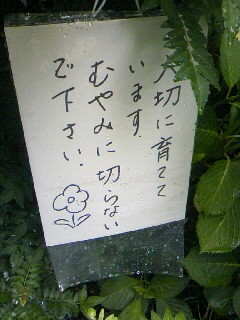 大切に育てて
います.
むやみに切らない
で下さい.